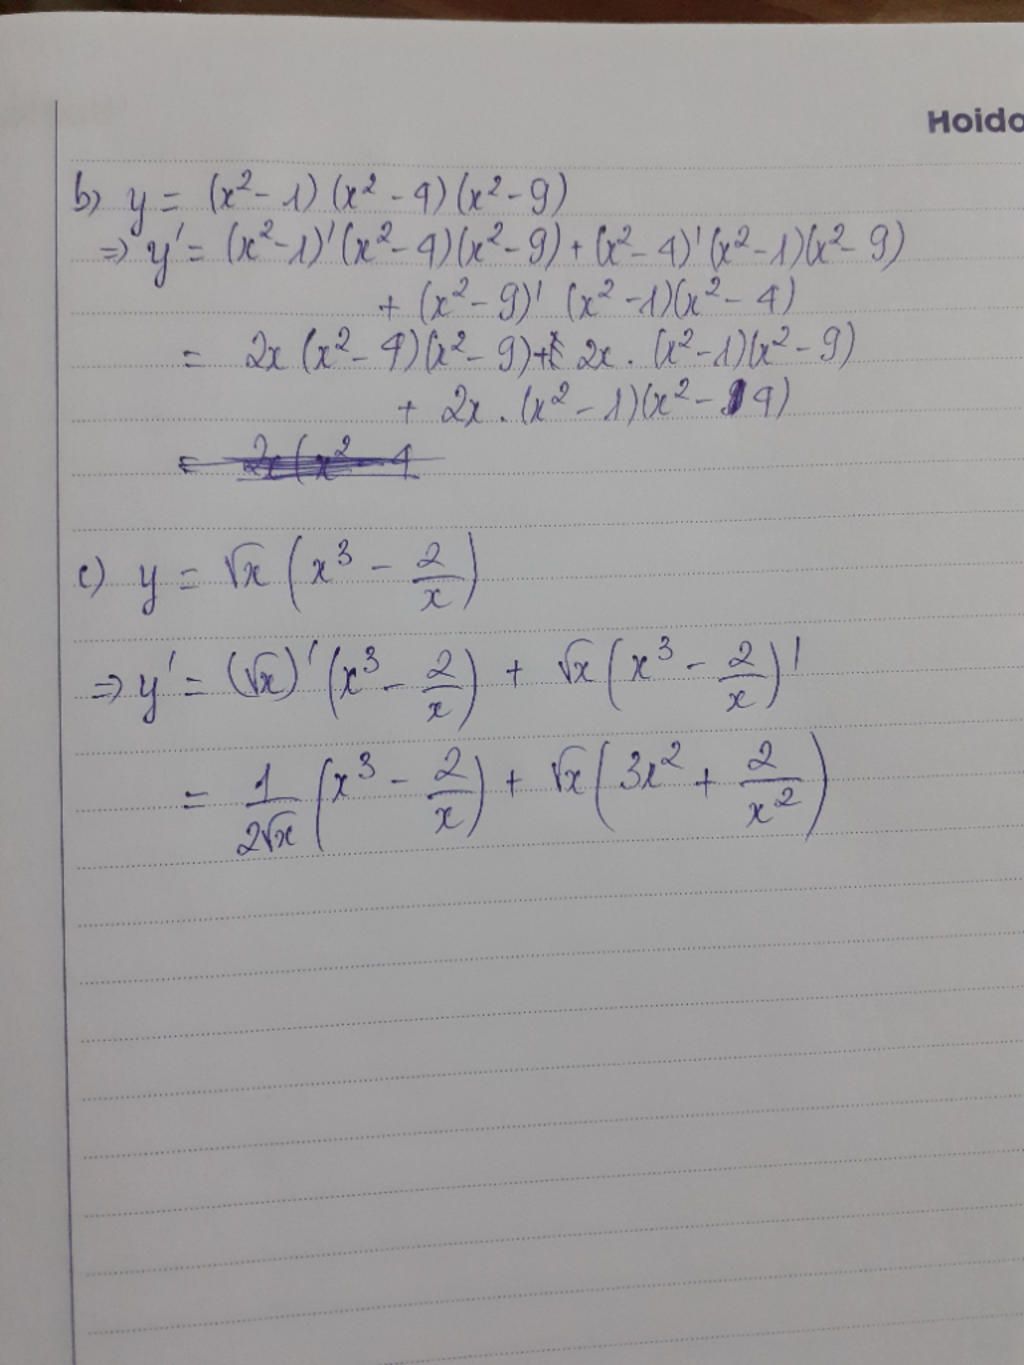 Hoido
b) y = (x² - 1) (x² - 4) (x² - 9)
=> y' = (x² - 1)' (x² - 4) (x² - 9) + (x² - 4)' (x² - 1) (x² - 9)
+ (x² - 9)' (x² - 1) (x² - 4)
= 2x (x² - 4) (x² - 9) + 2x . (x² - 1) (x² - 9)
+ 2x . (x² - 1) (x² - 4)
= 2x (x² - 4
c) y = √x (x³ - 2/x)
=> y' = (√x)' (x³ - 2/x) + √x (x³ - 2/x)'
= 1/2√x (x³ - 2/x) + √x (3x² + 2/x²)